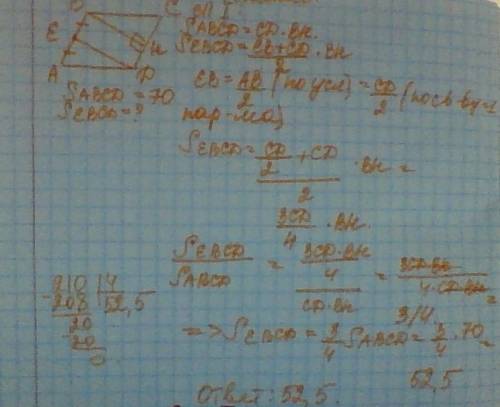 B C
E H
A D
S ABCD = CD · BH
S EBCD = (EB + CD)/2 · BH
S ABCD = 70
S EBCD = ?
EB = AB/2 (по усл) = CD/2 (по св-ву
пар-ма)
S EBCD = (CD/2 + CD)/2 · BH =
3CD/4 · BH.
S EBCD / S ABCD = (3CD·BH/4)/(CD·BH) = 3CD·BH/4·CD·BH =
3/4
=> S EBCD = 3/4 S ABCD = 3/4 · 70 =
52,5
210 | 4
- 208 | 52,5
20
20
0
Ответ: 52,5.